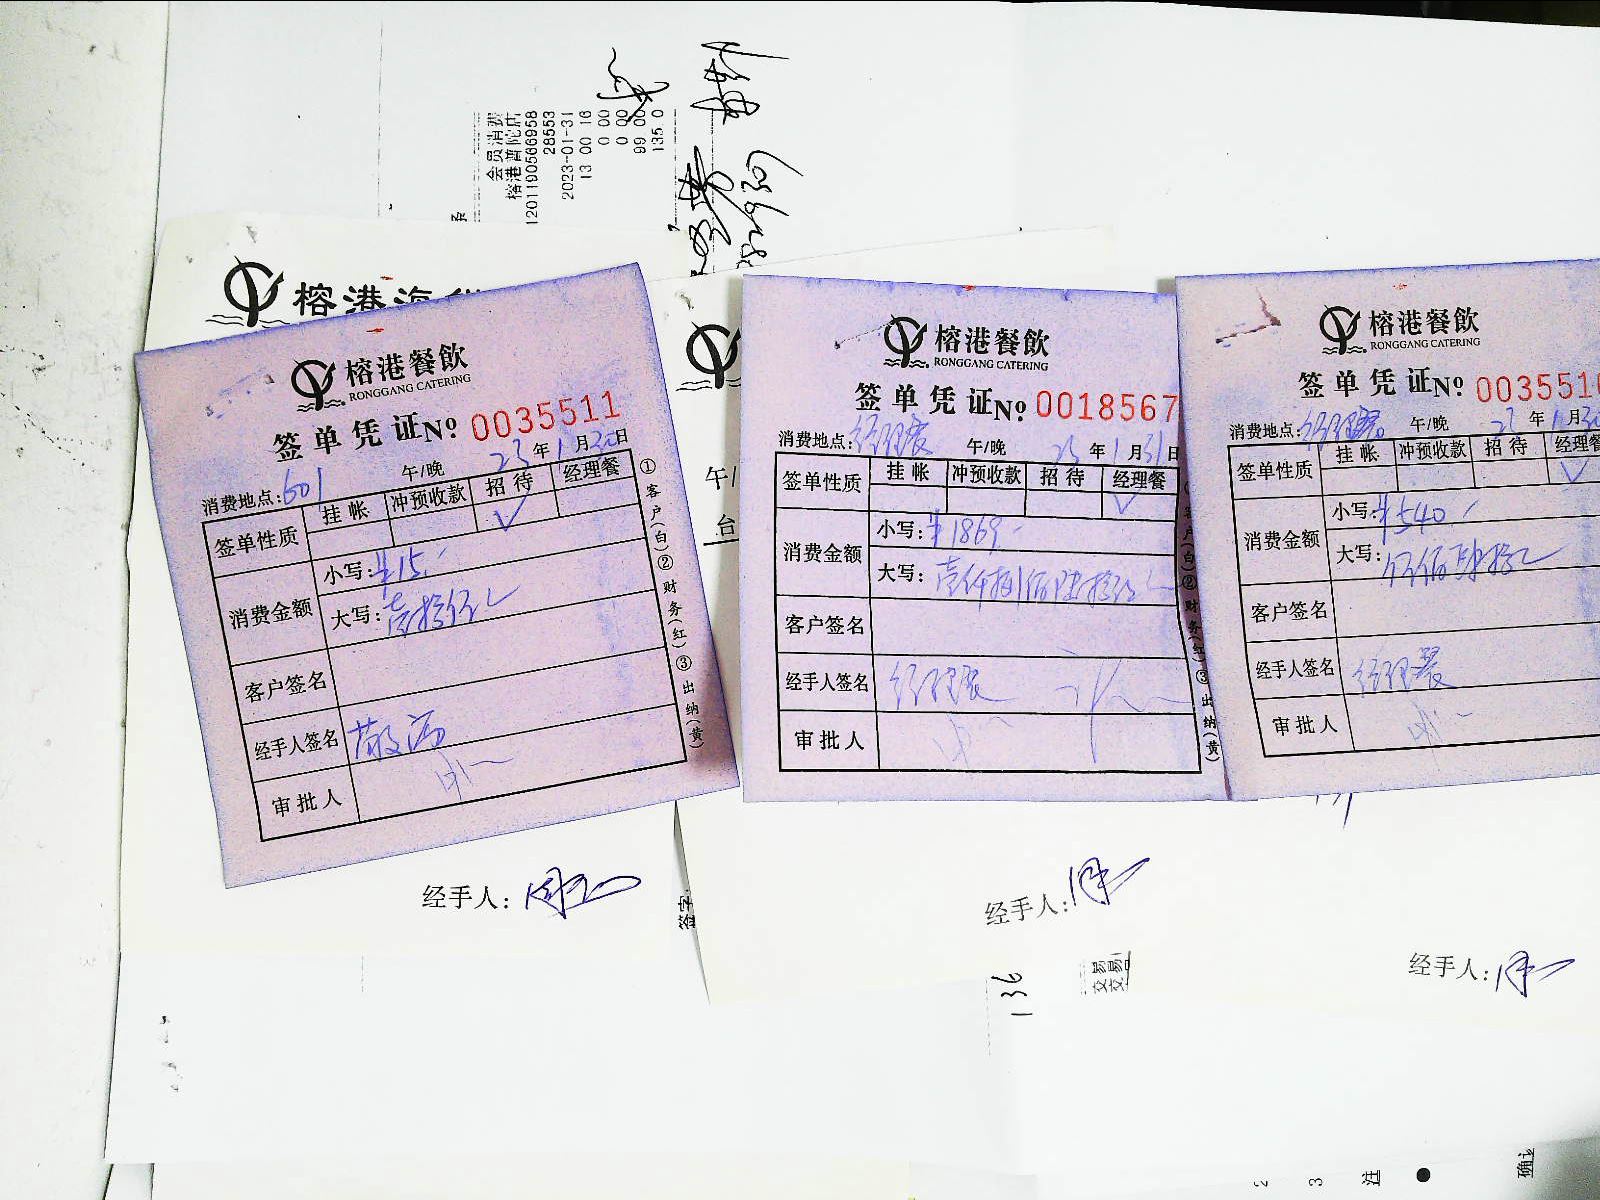 会员消费
榕港普陀店
1201190566958
28553
2023-01-31
13 00 16
0 00
0 00
99 00
135 0
榕港海鲜
榕港餐飲
RONGGANG CATERING
签单凭证 No 0035511
23年1月30日
消费地点:601 午/晚
签单性质 挂帐 冲预收款 招待 经理餐
✓
消费金额 小写:¥15.-
大写:壹拾伍
客户签名
经手人签名
审批人
①客户(白)②财务(红)③出纳(黄)
经手人:
榕港餐飲
RONGGANG CATERING
签单凭证 No 0018567
消费地点:经理餐 午/晚 23年1月31日
签单性质 挂帐 冲预收款 招待 经理餐
✓
消费金额 小写:¥1869.-
大写:壹仟捌佰陆拾玖
客户签名
经手人签名 经理餐
审批人
客户(白)②财务(红)③出纳(黄)
经手人:
榕港餐飲
RONGGANG CATERING
签单凭证 No 003551
消费地点:经理餐 午/晚 23年1月30
签单性质 挂帐 冲预收款 招待 经理餐
✓
消费金额 小写:¥540.-
大写:伍佰肆拾
客户签名
经手人签名 经理餐
审批人
经手人:
午/
台
签字:
136
交易
交易
2
3
注
●
确认